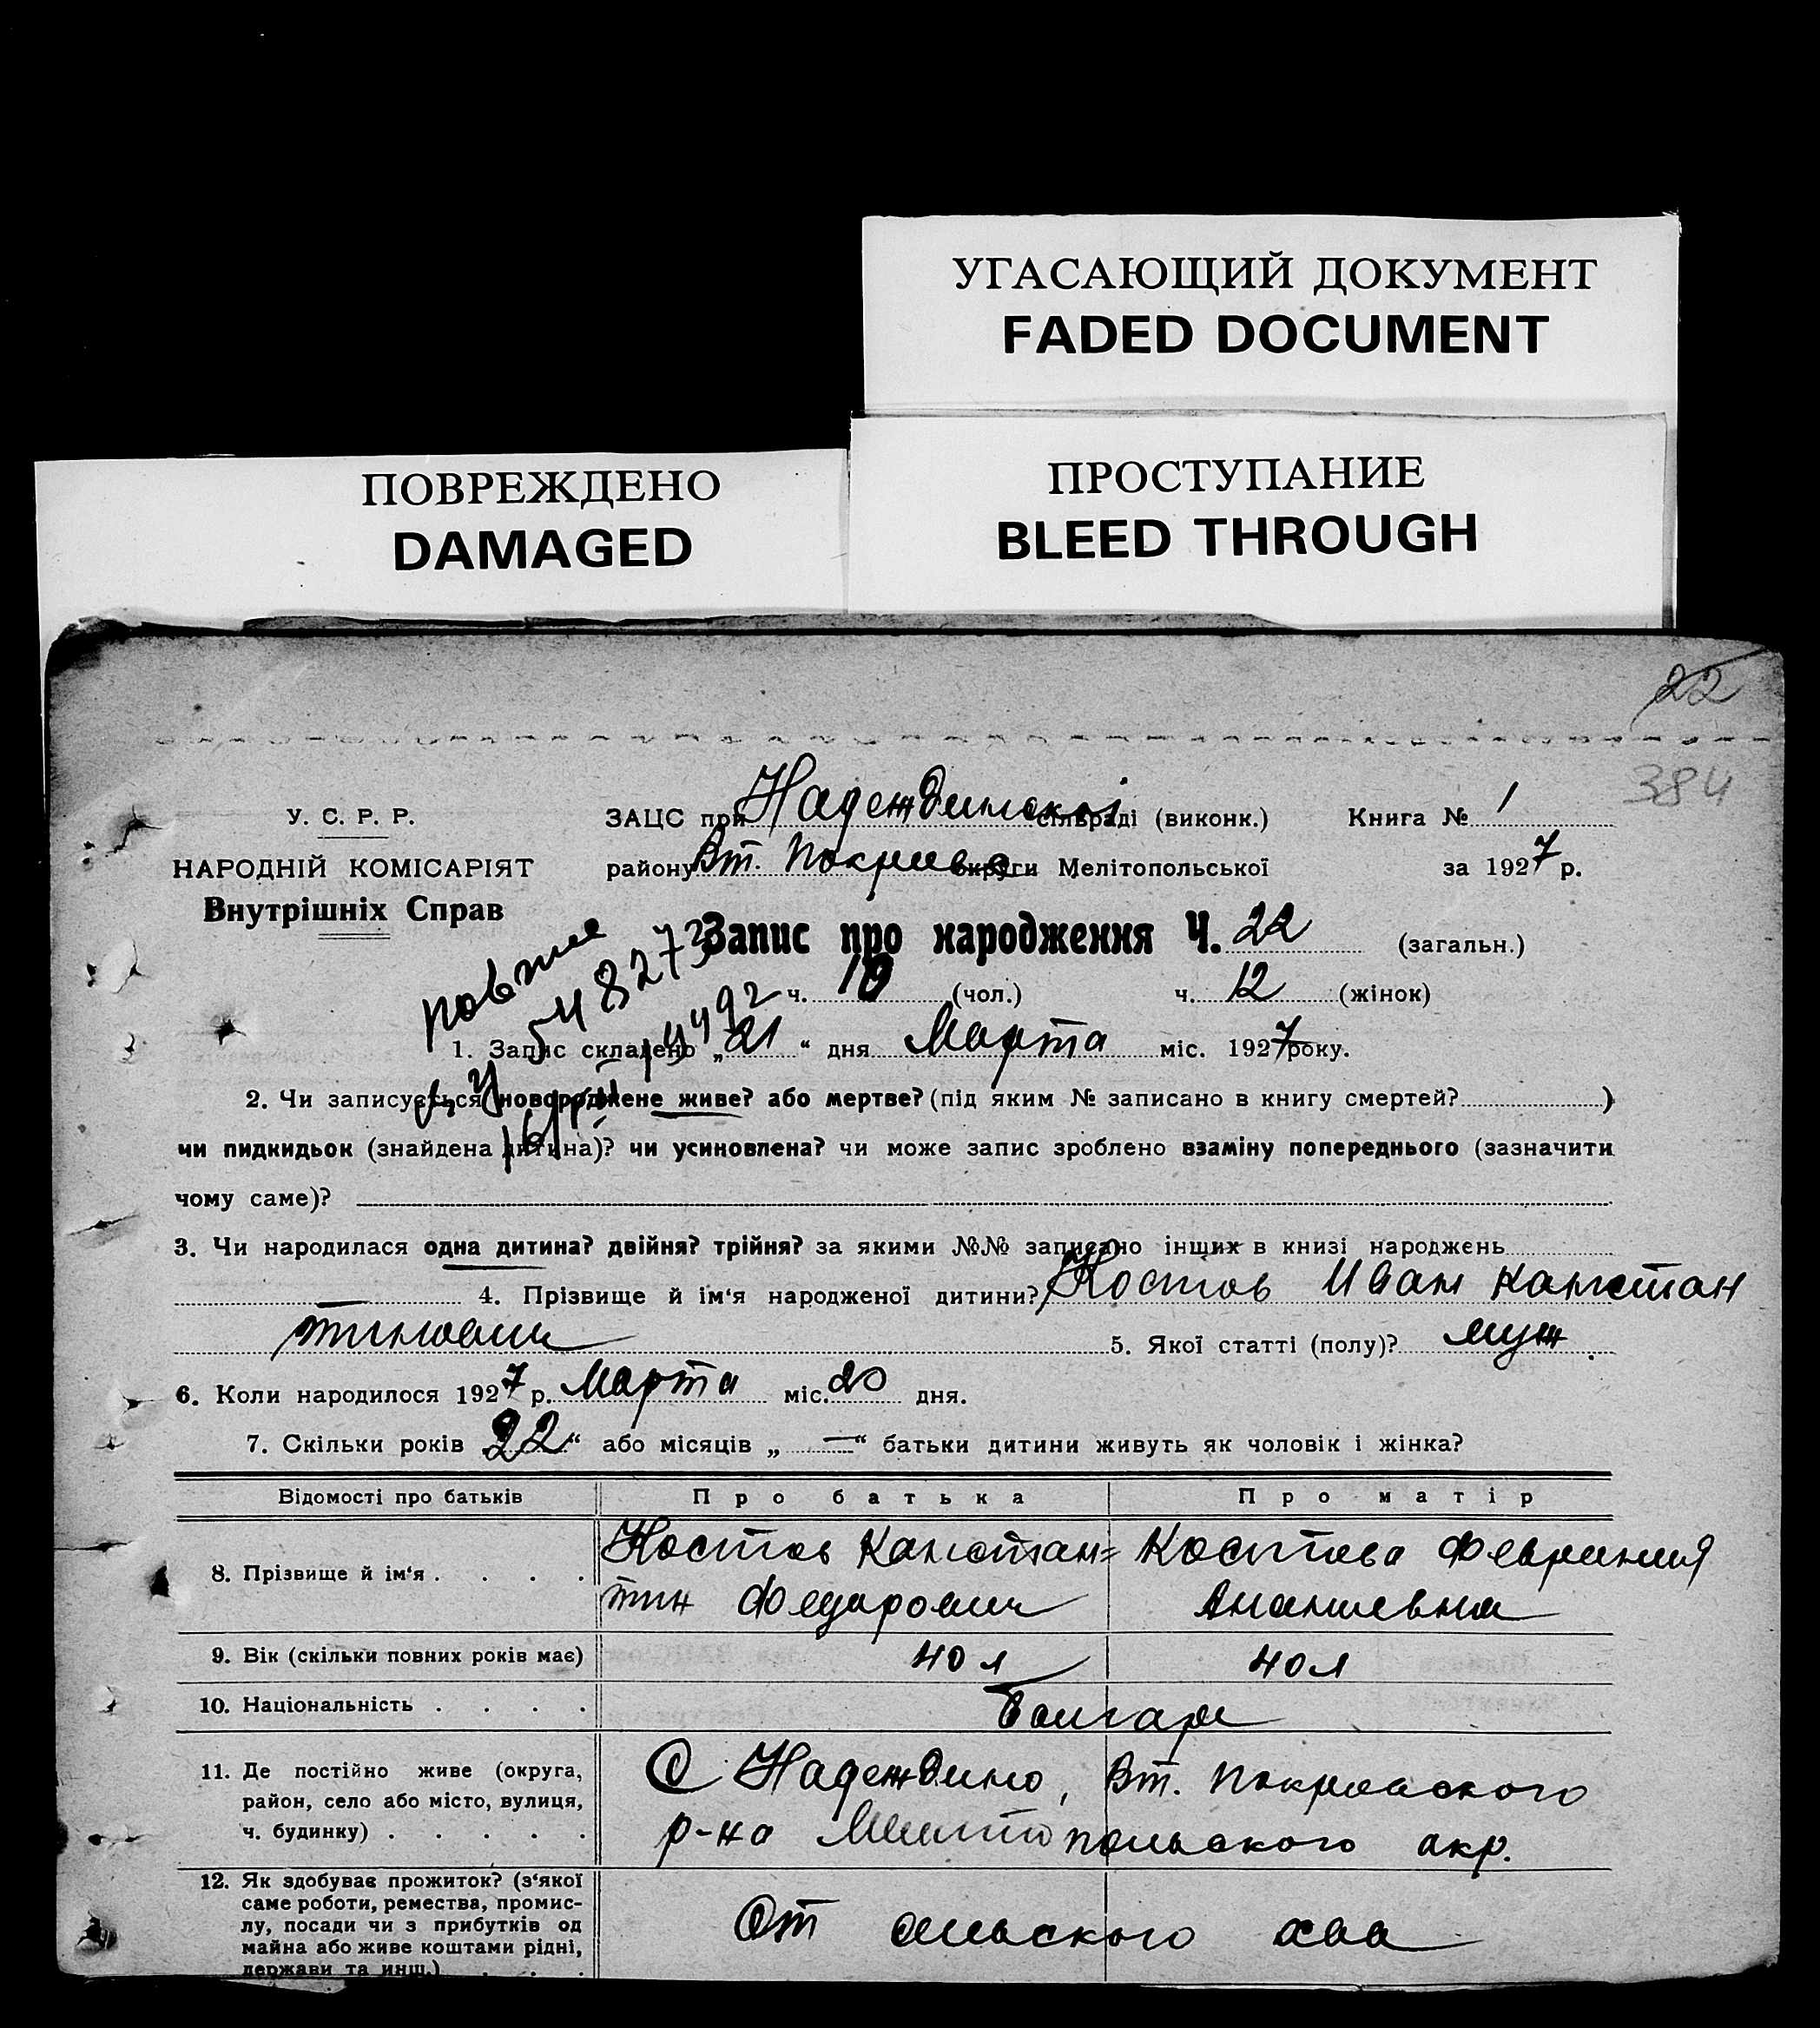 УГАСАЮЩИЙ ДОКУМЕНТ
FADED DOCUMENT
ПОВРЕЖДЕНО
DAMAGED
ПРОСТУПАНИЕ
BLEED THROUGH
22
384
У. С. Р. Р.
ЗАЦС при Надеждинскої сільраді (виконк.) Книга № 1
НАРОДНІЙ КОМІСАРІЯТ
району Вт. Покровс округи Мелітопольської за 1927 р.
Внутрішніх Справ
Запис про народження Ч. 22 (загальн.)
ч. 10 (чол.) ч. 12 (жінок)
1. Запис складено „21“ дня Марта міс. 1927 року.
2. Чи записується новороджене живе? або мертве? (під яким № записано в книгу смертей? )
чи пидкидьок (знайдена дитина)? чи усиновлена? чи може запис зроблено взаміну попереднього (зазначити
чому саме)?
3. Чи народилася одна дитина? двійня? трійня? за якими №№ записано інщих в книзі народжень
— 4. Прізвище й ім‘я народженої дитини? Костов Иван Констан
тинович 5. Якої статті (полу)? муж.
6. Коли народилося 1927 р. Марта міс. 20 дня.
7. Скільки років „22“ або місяців „—“ батьки дитини живуть як чоловік і жінка?
Відомості про батьків Про батька Про матір
8. Прізвище й ім‘я . . . . Костов Констан= Костова Феврания
тин Федорович Ананиевна
9. Вік (скільки повних років має) 40 л 40 л
10. Національність . . . . Болгаре
11. Де постійно живе (округа, район, село або місто, вулиця, ч. будинку) . . . . . С Надеждино, Вт. Покровского
р-на Мелитопольского окр.
12. Як здобуває прожиток? (з‘якої саме роботи, ремества, промислу, посади чи з прибутків од майна або живе коштами рідні, держави та инш.) . . . От сельского хва